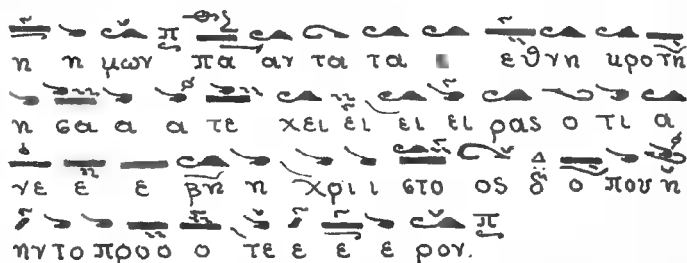 η η μων πα αν τα τα ε θνη κρο τη
η σα α α τε χει ει ει ει ρας ο τι α
νε ε ε βη η χρι ι στο ος δ ο που η
ην το προ ο ο τε ε ε ε ρον.